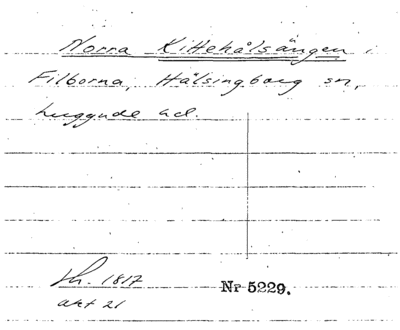 Norra Kittehålsängen i
Filborna, Hälsingborg sn,
Luggude hd.
Nr 5229.
Sk. 1817
akt 21